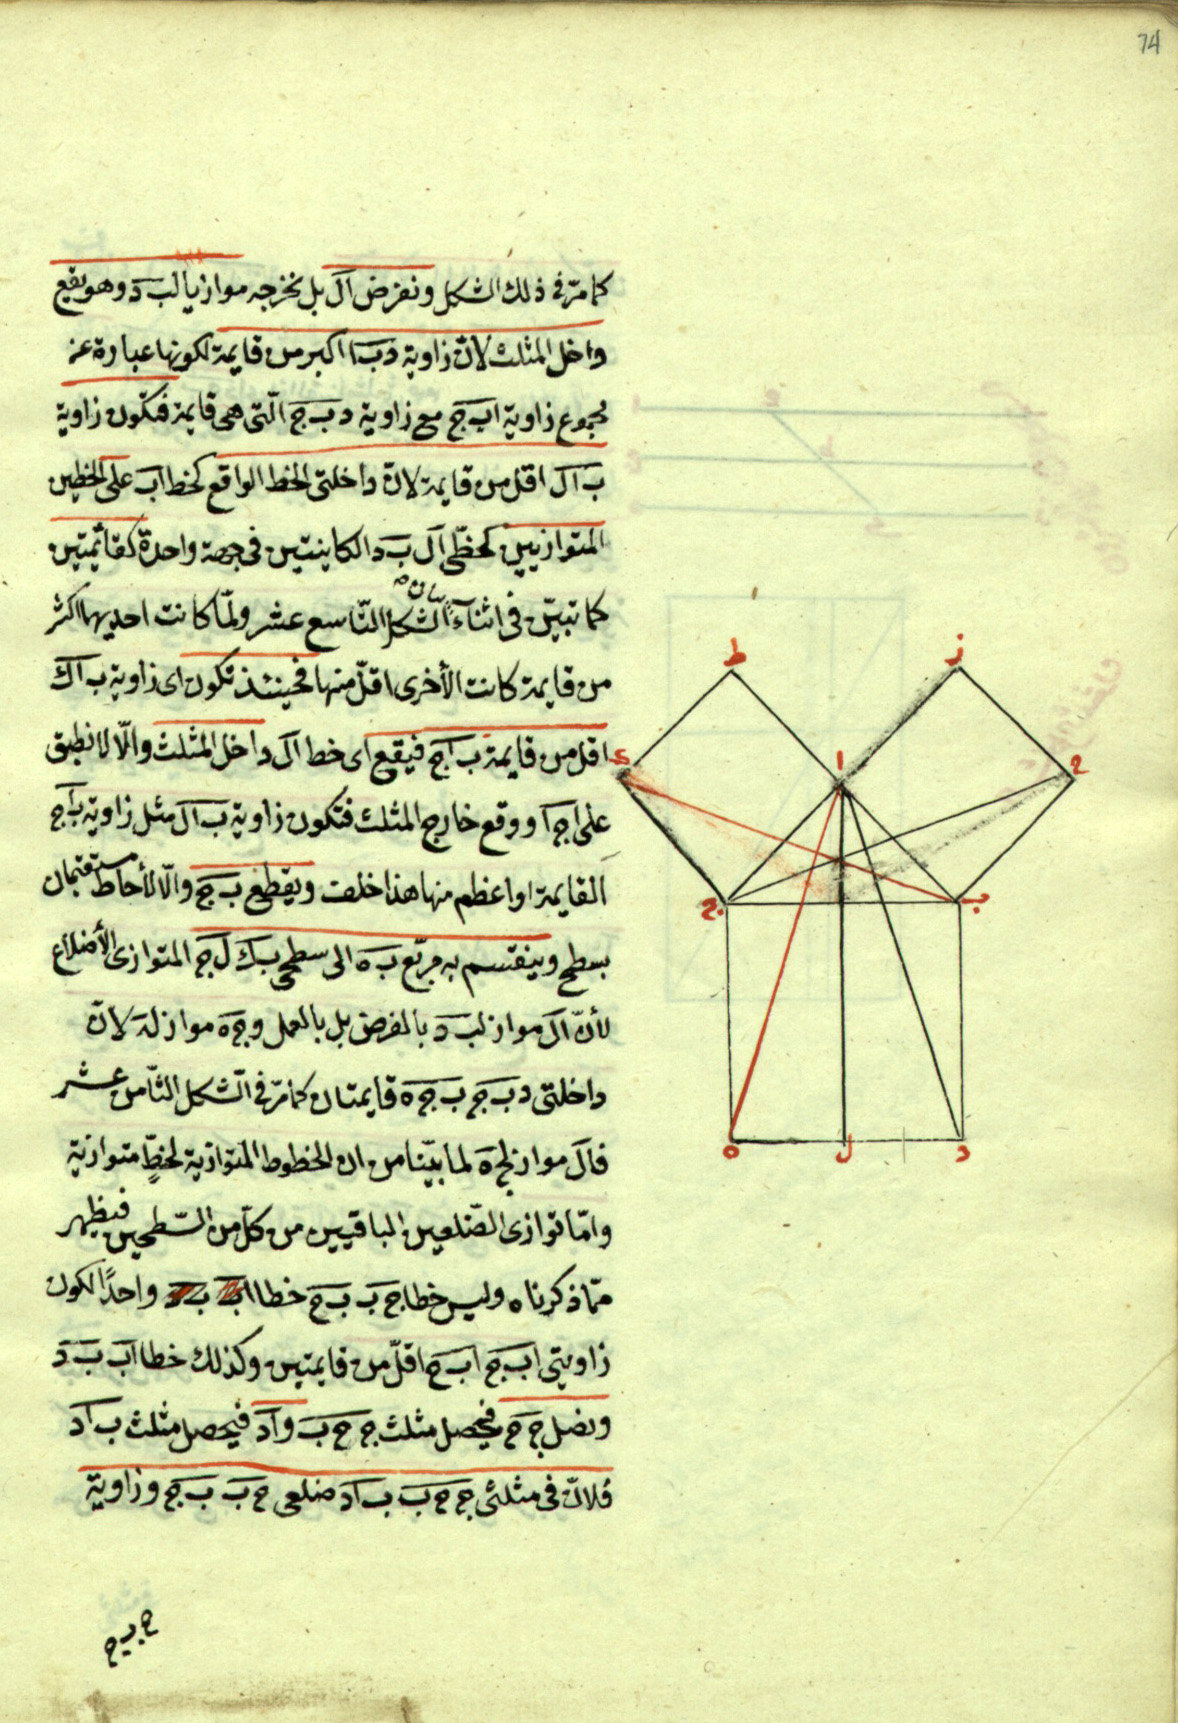 74
كما مرّ فى ذلك الشكل ونفرض ال بل نخرجه موازيا لب د وهو يقع
داخل المثلث لانّ زاوية د ب ا اكبر من قايمة لكونها عبارة عن
مجموع زاوية اب ج مع زاوية د ب ج الّتى هى قايمة فتكون زاوية
ب ال اقل من قايمة لانّ داخلتى الخط الواقع كخط اب على الخطين
المتوازيين كخطّى ال ب د الكاينتين فى جهة واحدة كقائمتين
كما تبيّن فى اثنآء بيان الشكل التّاسع عشر ولمّا كانت احديهما اكثر
من قايمة كانت الأخرى اقلّ منها فحينئذ تكون اى زاوية ب ال
اقل من قايمة ب ا ج فيقع اى خط ال داخل المثلث والّا لانطبق
على ا ج او وقع خارج المثلث فتكون زاوية ب ال مثل زاوية ب ا ج
القايمة او اعظم منها هذا خلف ويقطع ب ج والّا لأحاط مستقيمان
بسطح وينقسم به مربّع ب ه الى سطحى ب ك ل ج المتوازى الأضلاع
لأنّ ال مواز لب د بالفرض بل بالعمل و ج ه مواز له لانّ
داخلتى د ب ج ب ج ه قايمتان كما مرّ فى الشكل الثّامن عشر
فال مواز لج ه لما بيّنا من ان الخطوط المتوازية لخطٍّ متوازية
وامّا توازى الضّلعين الباقيين من كلّ من السّطحين فيظهر
ممّا ذكرناه وليس خطا ج ب ب ح خطا واحدًا لكون
زاويتى اب ج اب ح اقلّ من قايمتين وكذلك خطا اب ب د
ونصل ج ح فيحصل مثلث ج ح ب و ا د فيحصل مثلث ب ا د
فلانّ فى مثلثى ج ح ب ب ا د ضلعى ح ب ب ج وزاوية
ح ب ج
ط
ز
ى
ا
ح
ج
ب
ه
ل
د